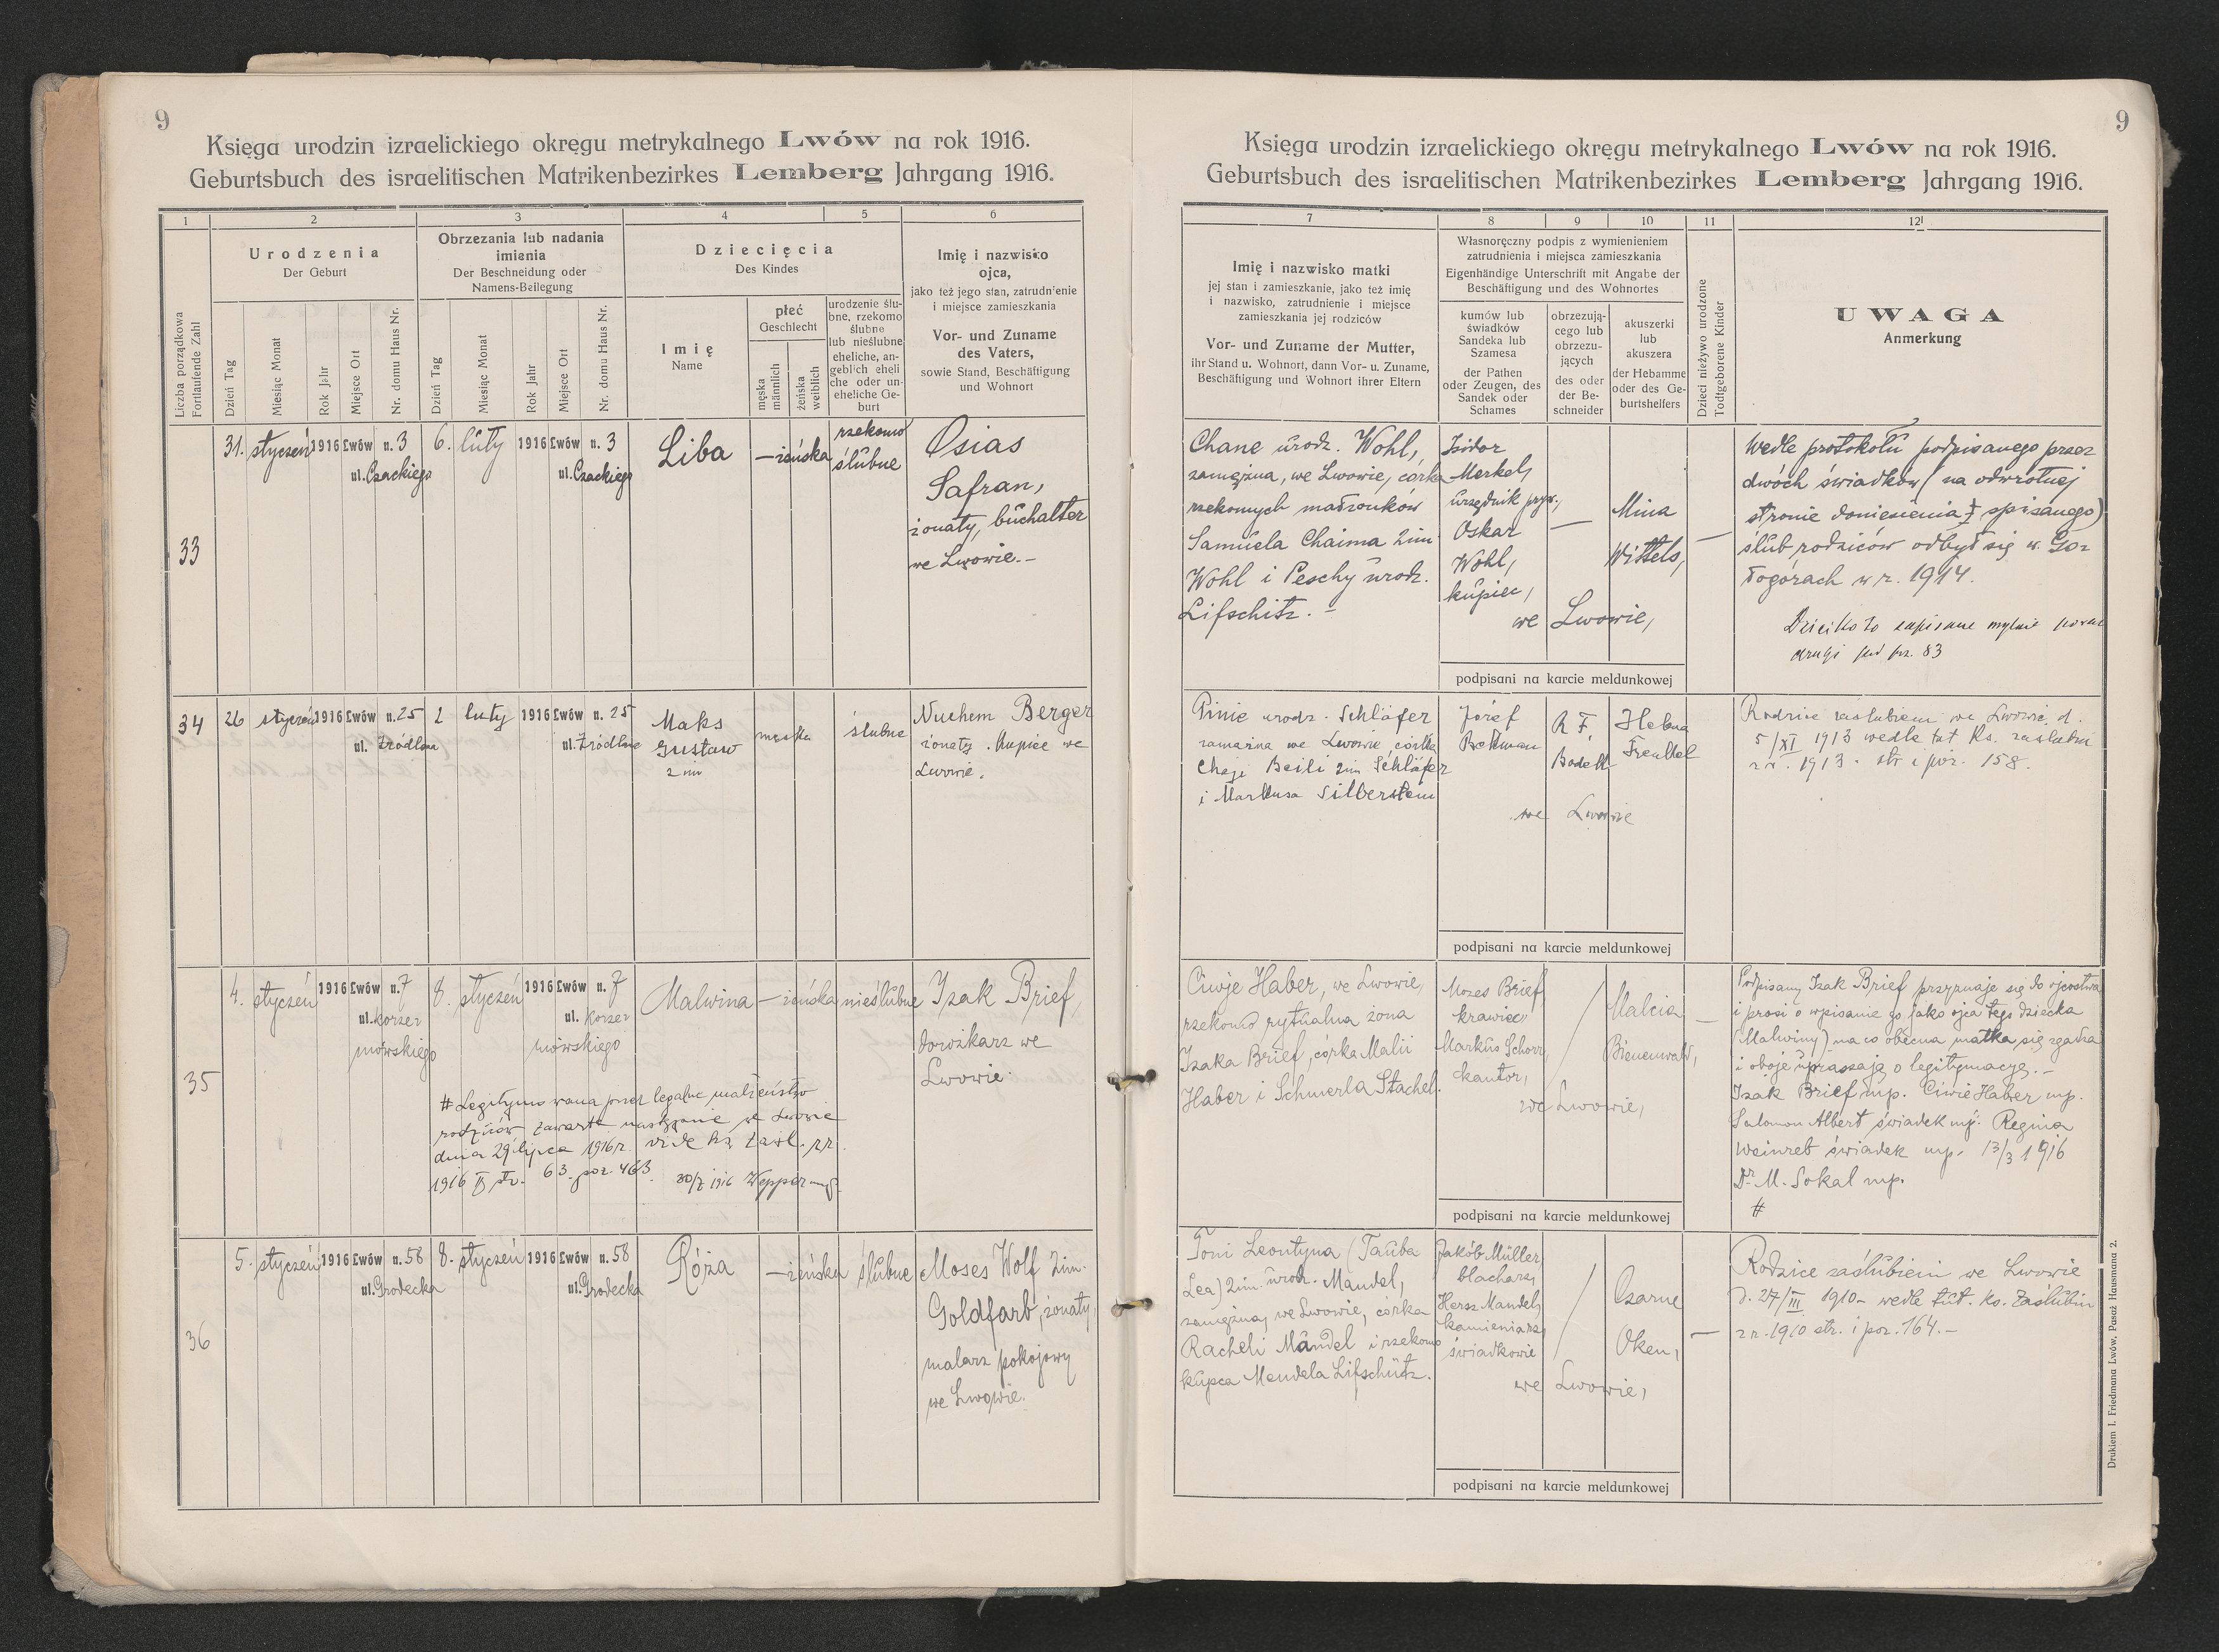 9
Księga urodzin izraelickiego okręgu metrykalnego Lwów na rok 1916.
Geburtsbuch des israelitischen Matrikenbezirkes Lemberg Jahrgang 1916.
1 2 3 4 5 6
Liczba porządkowa
Fortlaufende Zahl
Urodzenia
Der Geburt
Dzień Tag
Miesiąc Monat
Rok Jahr
Miejsce Ort
Nr. domu Haus Nr.
Obrzezania lub nadania
imienia
Der Beschneidung oder
Namens-Beilegung
Dzień Tag
Miesiąc Monat
Rok Jahr
Miejsce Ort
Nr. domu Haus Nr.
Dziecięcia
Des Kindes
Imię
Name
płeć
Geschlecht
męska
männlich
żeńska
weiblich
urodzenie ślu-
bne, rzekomo
ślubne
lub nieślubne
eheliche, an-
geblich eheli
che oder un-
eheliche Ge-
burt
Imię i nazwisko
ojca,
jako też jego stan, zatrudnienie
i miejsce zamieszkania
Vor- und Zuname
des Vaters,
sowie Stand, Beschäftigung
und Wohnort
33
31. styczeń 1916 Lwów n. 3
ul. Czackiego
6. luty 1916 Lwów n. 3
ul. Czackiego
Liba
— żeńska
rzekomo
ślubne
Osias
Safran,
żonaty, buchalter
we Lwowie.—
34
26 styczeń 1916 Lwów n. 25
ul. Źródlana
2 luty 1916 Lwów n. 25
ul. Źródlana
Maks
Gustaw
2 im
męska
ślubne
Nuchem Berger
żonaty. Kupiec we
Lwowie.
35
4. styczeń 1916 Lwów n. 7
ul. Korzeniowskiego
8. styczeń 1916 Lwów n. 7
ul. Korzeniowskiego
Malwina
— żeńska
nieślubne
Izak Brief,
dorożkarz we
Lwowie.
# Legitymowana przez legalne małżeństwo
rodziców zawarte następnie we Lwowie
dnia 29 lipca 1916 r. vide ks. zaśl. z r.
1916 II str. 63. poz. 463.
30/7 1916 Wepper mp.
36
5. styczeń 1916 Lwów n. 58
ul. Grodecka
8. styczeń 1916 Lwów n. 58
ul. Grodecka
Róża
— żeńska
ślubne
Moses Wolf 2im.
Goldfarb, żonaty,
malarz pokojowy
we Lwowie.
9
Księga urodzin izraelickiego okręgu metrykalnego Lwów na rok 1916.
Geburtsbuch des israelitischen Matrikenbezirkes Lemberg Jahrgang 1916.
7 8 9 10 11 12
Imię i nazwisko matki
jej stan i zamieszkanie, jako też imię
i nazwisko, zatrudnienie i miejsce
zamieszkania jej rodziców
Vor- und Zuname der Mutter,
ihr Stand u. Wohnort, dann Vor- u. Zuname,
Beschäftigung und Wohnort ihrer Eltern
Własnoręczny podpis z wymienieniem
zatrudnienia i miejsca zamieszkania
Eigenhändige Unterschrift mit Angabe der
Beschäftigung und des Wohnortes
kumów lub
świadków
Sandeka lub
Szamesa
der Pathen
oder Zeugen, des
Sandek oder
Schames
obrzezują-
cego lub
obrzezu-
jących
des oder
der Be-
schneider
akuszerki
lub
akuszera
der Hebamme
oder des Ge-
burtshelfers
Dzieci nieżywo urodzone
Todtgeborene Kinder
UWAGA
Anmerkung
Chane urodz. Wohl,
zamężna, we Lwowie, córka
rzekomych małżonków
Samuela Chaima 2im.
Wohl i Peschy urodz.
Lifschitz.—
Izidor
Merkel,
urzędnik pryw.,
Oskar
Wohl,
kupiec,
—
Mina
Wittels,
we Lwowie,
—
Wedle protokołu podpisanego przez
dwóch świadków (na odwrotnej
stronie doniesienia spisanego)
ślub rodziców odbył się w Go-
łogórach w r. 1914.
Dziecko to zapisane mylnie poraz
drugi pod poz. 83
podpisani na karcie meldunkowej
Pinie urodz. Schläfer
zamężna we Lwowie, córka
Chaji Beili 2im Schläfer
i Markusa Silberstein
Józef
R. F.
Bodek
Helena
Frenkel
we Lwowie
Rodzice zaślubieni we Lwowie, d.
5/XI 1913 wedle tut ks. zaślubin
z r. 1913. str i poz. 158.
podpisani na karcie meldunkowej
Ciwje Haber, we Lwowie,
rzekomo rytualna żona
Izaka Brief, córka Malii
Haber i Schmerla Stachel.
Mozes Brief
krawiec,
Markus Schorr,
kantor,
Malcia
Bienenwald,
we Lwowie,
—
Podpisany Izak Brief przyznaje się do ojcostwa
i prosi o wpisanie go jako ojca tego dziecka
(Malwiny) na co obecna matka się zgadza
i oboje upraszają o legitymację.—
Izak Brief mp. Ciwie Haber mp.
Salomon Albert świadek mp. Regina
Weinreb świadek mp. 13/3 1916
Dr. M. Sokal mp.
#
podpisani na karcie meldunkowej
Toni Leontyna (Tauba
Lea) 2im. urodz. Mandel,
zamężna, we Lwowie, córka
Racheli Mandel i rzekomo
kupca Mendela Lifschütz.
Jakób Müller,
blacharz,
Hersz Mandel,
kamieniarz,
świadkowie
Czarne
Oken,
we Lwowie,
—
Rodzice zaślubieni we Lwowie
d. 27/III 1910 — wedle tut. ks. zaślubin
z r. 1910 str. i poz. 164.—
podpisani na karcie meldunkowej
Drukiem I. Friedmana Lwów, Pasaż Hausmana 2.